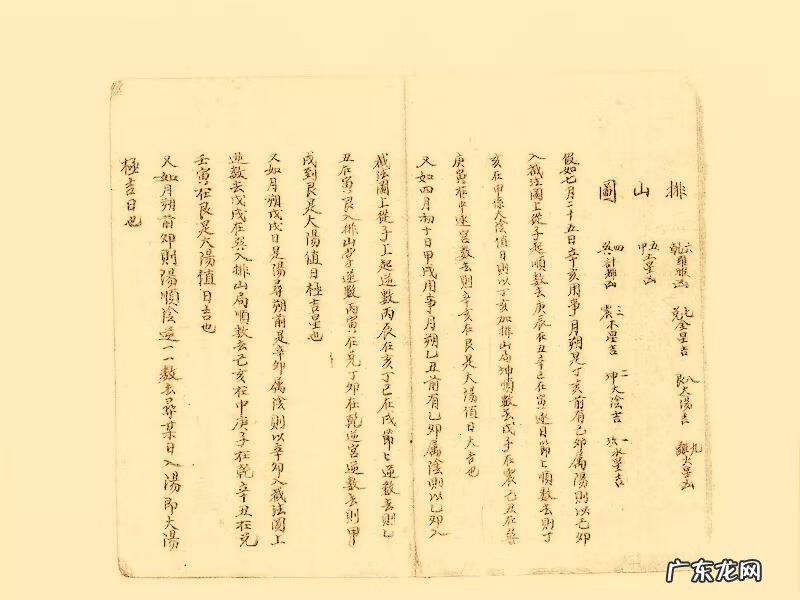 排山圖
六 乾羅猴凶 七 兌金星吉 八 艮太陽吉 九 離火星凶
五 中土星凶
四 巽計都凶 三 震木星吉 二 坤太陰吉 一 坎水星吉
假如七月二十五日辛亥用事月朔是丁亥前有己卯屬陽則以己卯
入截法圖上從子起順數去庚辰在丑辛巳在寅逐日節節順數去則丁
亥在甲係太陰值日則以丁亥加排山局坤順數去戊子在震己丑在巽
庚寅在中逐宮數去則辛亥在艮是太陽值日大吉也
又如四月初十日甲戌用事月朔乙丑前有乙卯屬陰則以乙卯入
截法圖上從子上起逆數丙辰在亥丁巳在戌節節逆數去則乙
丑在寅艮入排山掌逆數丙寅在兌丁卯在乾逆宮逆數去則甲
戌到艮是太陽值日極吉星也
又如月朔戊戌日是陽尋朔前是辛卯屬陰則以辛卯入截法圖上
逆數去戊戌在巽入排山局順數去己亥在中庚子在乾辛丑在兌
壬寅在艮是太陽值日吉也
又如月朔前卯則陽順陰逆一一數去尋某日入湯即大湯
極吉日也
广东龙网